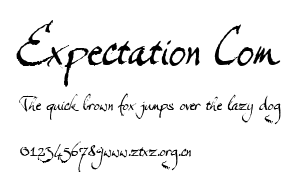 Expectation Com
The quick brown fox jumps over the lazy dog
0123456789www.ztxz.org.cn